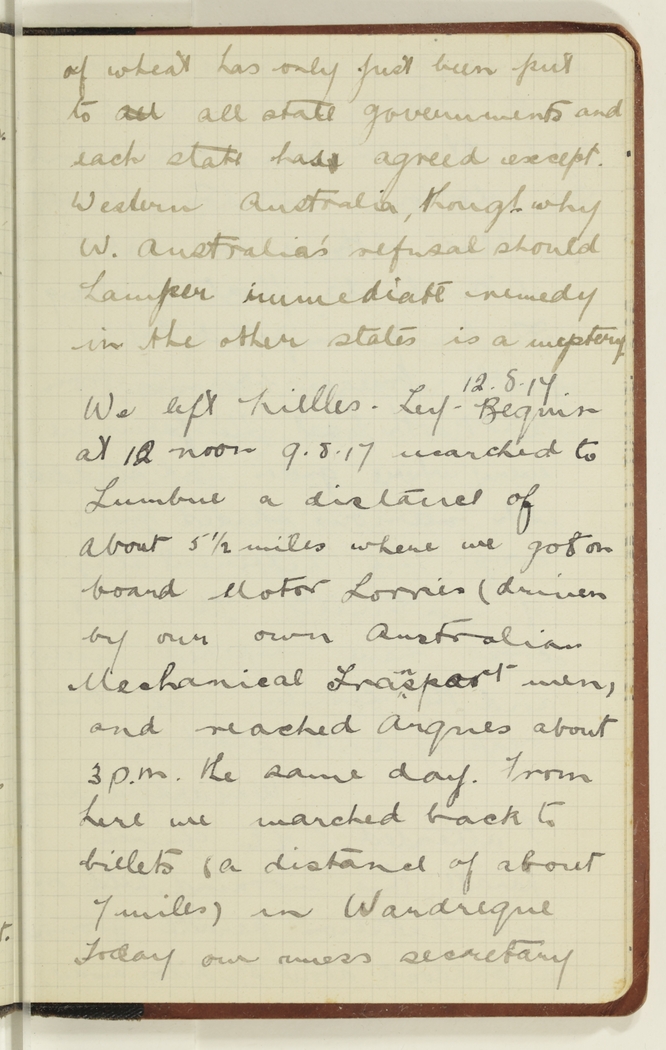 of wheat has only just been put
to all all state governments and
each state has agreed except.
Western Australia, though why
W. Australia's refusal should
hamper immediate remedy
in the other states is a mystery
12.8.17
We left Nielles-Les-Bequin
at 12 noon 9.8.17 marched to
Lumbue a distance of
about 5 1/2 miles where we got on
board Motor Lorries (driven
by our own Australian
Mechanical Transport men,
and reached Arques about
3 p.m. the same day. From
here we marched back to
billets (a distance of about
7 miles) in Wardreque
Today our mess secretary